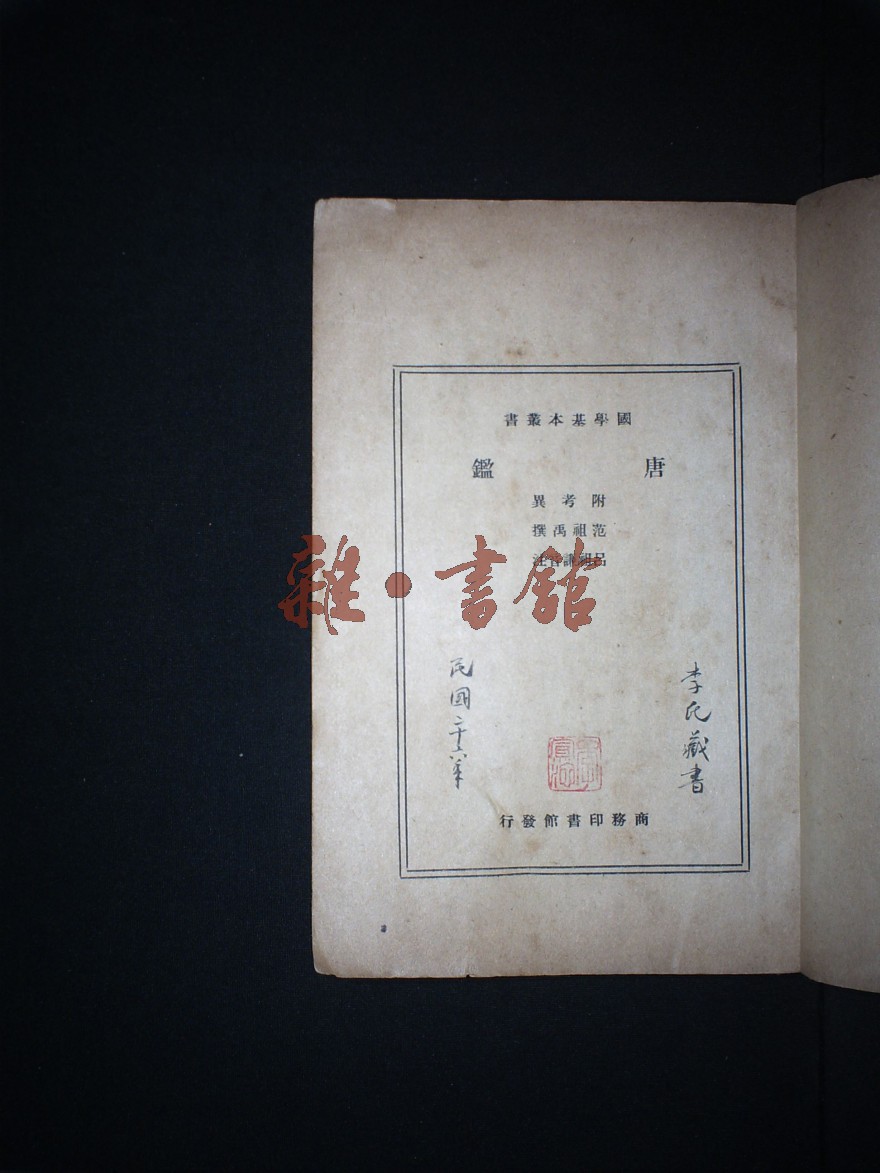 國學基本叢書
唐鑑
附考異
范祖禹撰
呂祖謙音注
雜·書館
李氏藏書
民國二十六年
商務印書館發行